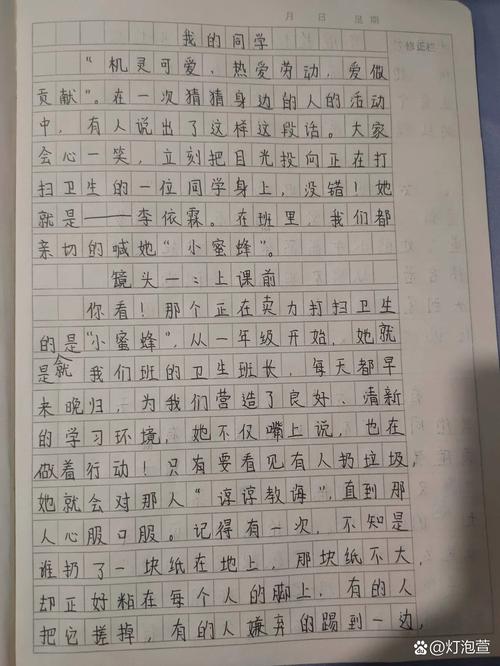 月 日 星期
我的同学
修正栏
“机灵可爱、热爱劳动，爱做
贡献”。在一次猜猜身边的人的活动
中，有人说出了这样这段话。大家
会心一笑，立刻把目光投向正在打
扫卫生的一位同学身上，没错！她
就是——李依霖。在班里，我们都
亲切的喊她“小蜜蜂”。
镜头一：上课前
你看！那个正在卖力打扫卫生
的是“小蜜蜂”，从一年级开始，她就
是就我们班的卫生班长，每天都早
来晚归，为我们营造了良好、清新
的学习环境，她不仅嘴上说，也在
做着行动！只有要看见有人扔垃圾，
她就会对那人“谆谆教诲”，直到那
人心服口服。记得有一次，不知是
谁扔了一块纸在地上，那块纸不大，
却正好粘在每个人的脚上，有的人
把它搓掉，有的人嫌弃的踢到一边，
百度@灯泡萱